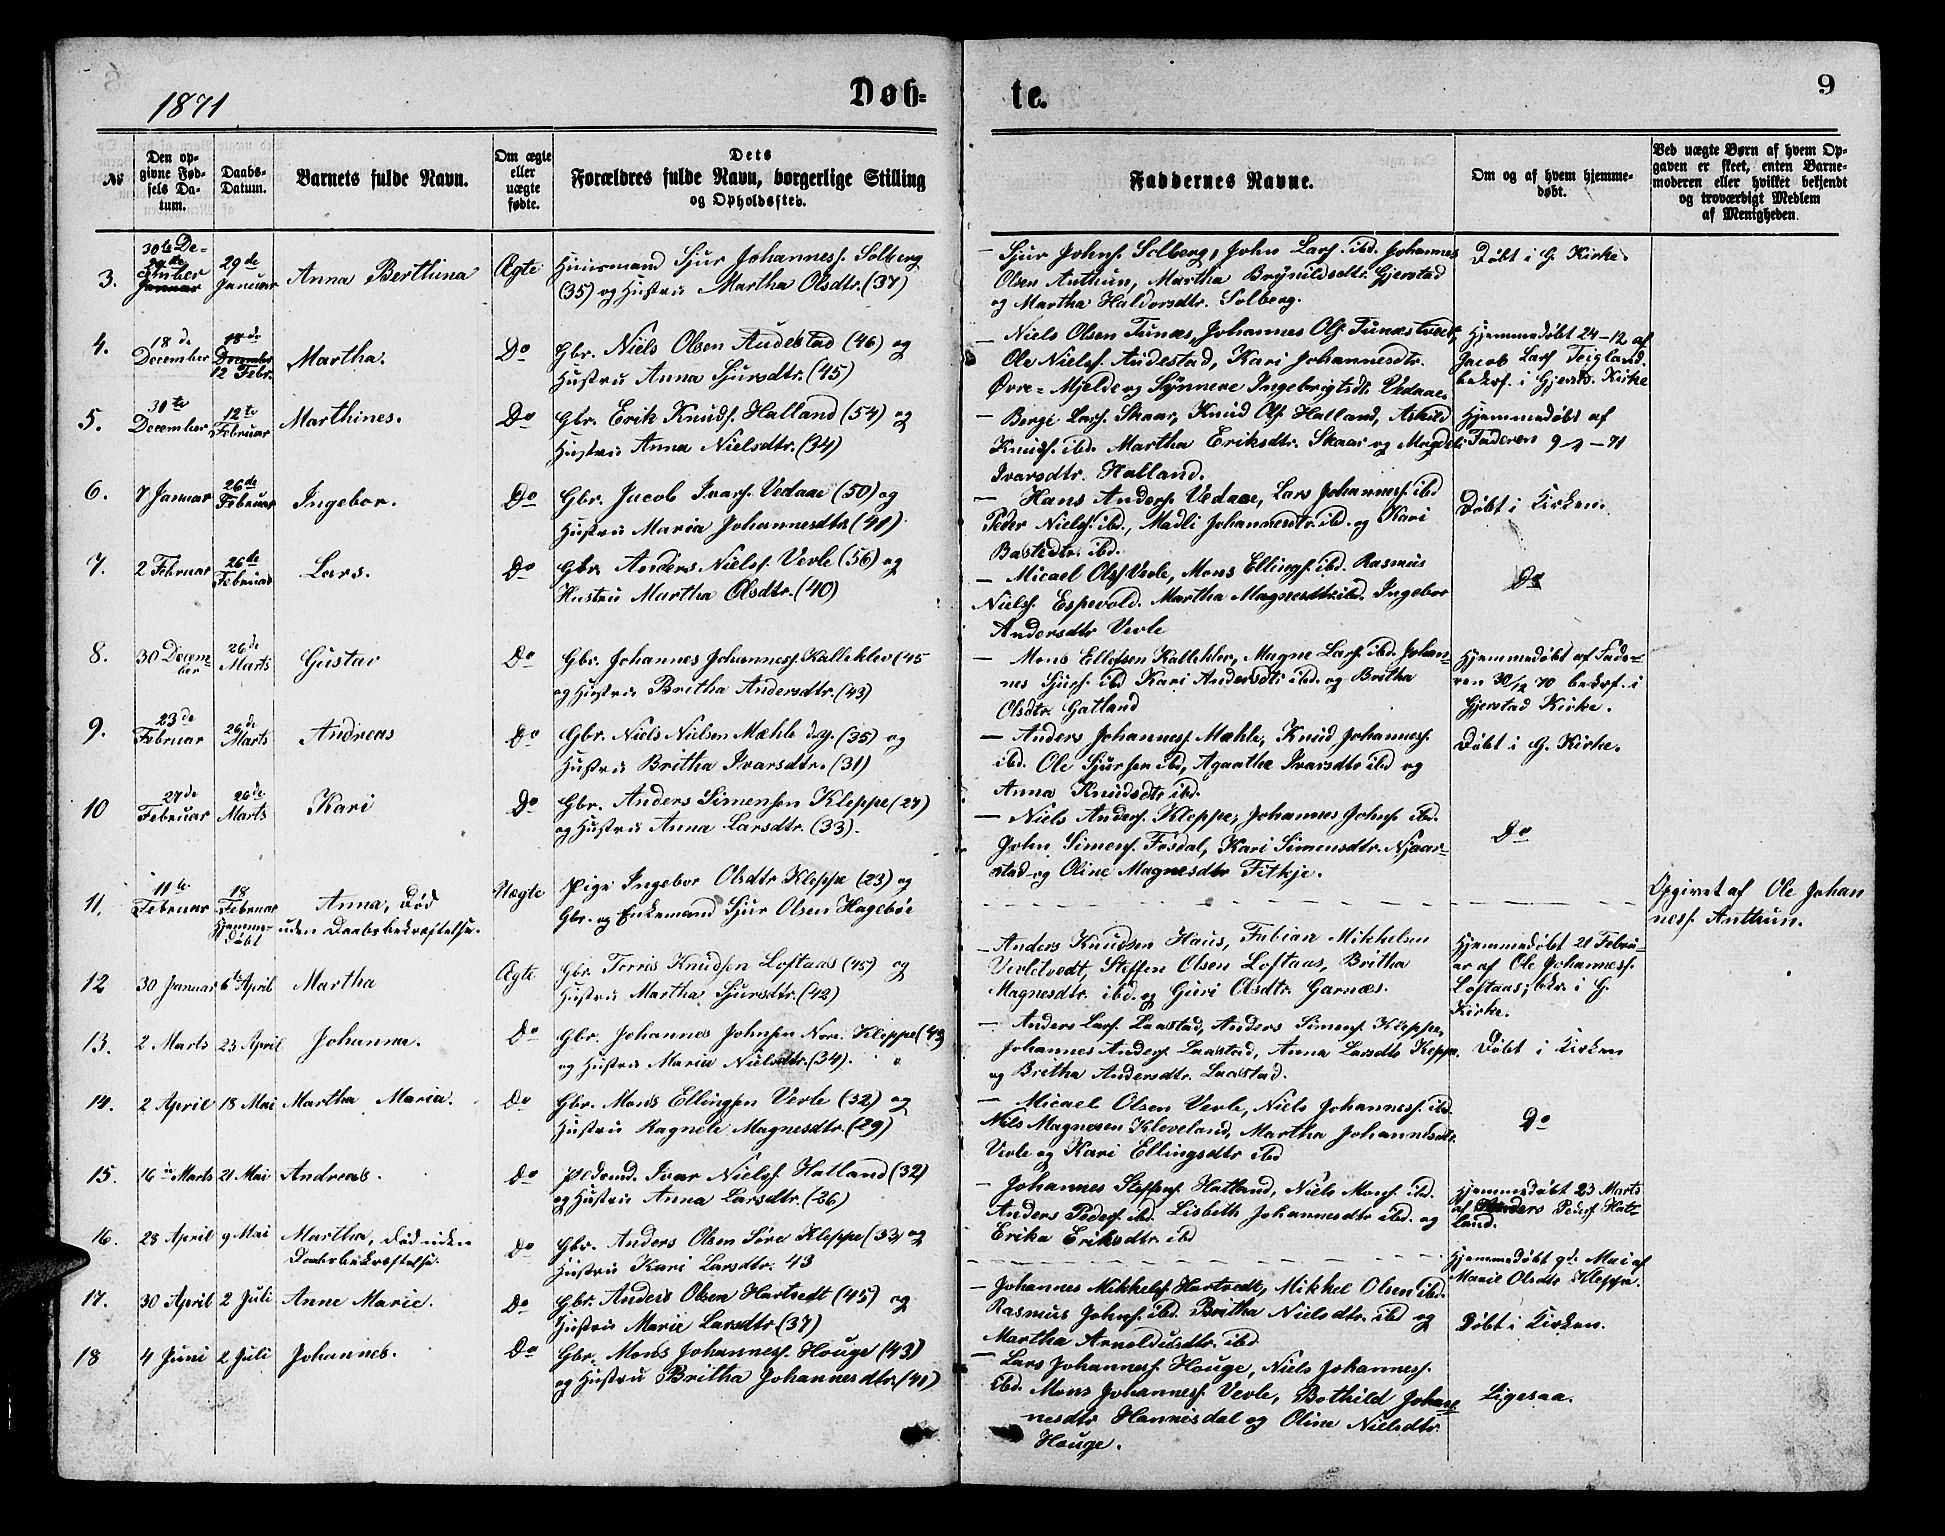 1871
Døb=
te.
9
No
Den op-
givne Fød-
sels Da-
tum.
Daabs-
Datum.
Barnets fulde Navn.
Om ægte
eller
uægte
fødte.
Dets
Forældres fulde Navn, borgerlige Stilling
og Opholdssted.
Faddernes Navne.
Om og af hvem hjemme-
døbt.
Ved uægte Børn af hvem Op-
gaven er skeet, enten Barne-
moderen eller hvilket bekjendt
og troværdigt Medlem
af Menigheden.
3.
30te De-
cember
Januar
29de
Januar
Anna Bertluna
Ægte
Huusmand Sjur Johannesf. Solberg
(35) og Hustru Martha Olsdtr. (37)
— Sjur Johnf. Solberg, John Larsf. ibd. Johannes
Olsen Anthun, Martha Brynildsdtr. Gjerstad
og Martha Haldorsdtr. Solberg.
Døbt i G. Kirke.
4.
18de
December
18de
December
12 Febr.
Martha.
Do
Gbr. Niels Olsen Audestad (46) og
Hustru Anna Sjursdtr. (45)
— Niels Olsen Tunæs, Johannes Olf. Tunæstvedt,
Ole Nielsf. Audestad, Kari Johannesdtr.
Øvre-Mjelde og Synneve Ingebrigtsdtr. Vedaae.
Hjemmedøbt 24-12 af
Jacob Larsf. Teigland.
bekræf. i Gjerst. Kirke
5.
30te
December
12te
Februar
Marthines.
Do
Gbr. Erik Knudsf. Halland (54) og
Hustru Anna Nielsdtr. (34)
— Børge Larsf. Skaar, Knud Olf. Halland, Askild
Knudsf. ibd. Martha Eriksdtr. Skaar og Magdeli
Ivarsdtr. Halland.
Hjemmedøbt af
Faderen 9-1-71
6.
7 Januar
26de
Februar
Ingebor.
Do
Gbr. Jacob Ivarsf. Vedaae (50) og
Hustru Maria Johannesdtr. (41)
— Hans Andersf. Vedaae, Lars Johannesf. ibd
Peder Nielsf. ibd., Madli Johannesdtr. ibd. og Kari
Bastedtr. ibd.
Døbt i Kirken.
7.
2 Februar
26de
Februar
Lars.
Do
Gbr. Anders Nielsf. Vevle (56) og
Hustru Martha Olsdtr. (40)
— Micael Olsf Vevle, Mons Ellingsf. ibd. Rasmus
Nielsf. Espevold. Martha Magnesdtr. ibd. Ingebor
Andersdtr Vevle
Do
8.
30 Decem-
ber
26de
Marts
Gustav
Do
Gbr. Johannes Johannesf. Kalleklev (45
og Hustru Britha Andersdtr. (43)
— Mons Ellefsen Kalleklev, Magne Larsf. ibd. Johan-
nes Sjursf. ibd Kari Andersdtr ibd. og Britha
Olsdtr. Gatland
Hjemmedøbt af Fade-
ren 30/12 70 bekræf. i
Gjerstad Kirke.
9.
23de
Februar
26de
Marts
Andreas
Do
Gbr. Niels Nielsen Mæhle d.y. (35) og
Hustru Britha Ivarsdtr. (31)
— Anders Johannesf. Mæhle, Knud Johannesf.
ibd. Ole Sjursen ibd, Agaathe Ivarsdtr ibd og
Anna Knudsdtr ibd.
Døbt i G. Kirke.
10
27de
Februar
26de
Marts
Kari
Do
Gbr. Anders Simensen Kleppe (27)
og Hustru Anna Larsdtr. (33).
— Niels Andersf. Kleppe, Johannes Johnsf. ibd.
John Simensf. Fosdal, Kari Simensdtr. Njaar-
stad og Oline Magnesdtr Fitkje.
Do
11.
11te
Februar
18
Februar
Hjemme-
døbt
Anna, død
uden Daabsbekræftelse.
Uægte
Pige Ingebor Olsdtr Kleppe (23) og
Gbr. og Enkemand Sjur Olsen Hagebøe
Opgivet af Ole Johan
nesf. Anthun.
12
30 Januar
6te April
Martha
Ægte
Gbr. Torris Knudsen Loftaas (45) og
Hustru Martha Sjursdtr. (42)
— Anders Knudsen Haus, Fabian Mikkelsen
Vevletvedt, Steffen Olsen Loftaas, Britha
Magnesdtr. ibd. og Guri Olsdtr. Garnæs.
Hjemmedøbt 21 Febru-
ar af Ole Johannesf.
Loftaas, bekr. i G.
Kirke.
13.
2 Marts
23 April
Johanna.
Do
Gbr. Johannes Johnsen Nore Kleppe (43)
og Hustru Maria Nielsdtr. (34).
— Anders Larsf. Laastad, Anders Simensf. Kleppe,
Johannes Andersf. Laastad, Anna Larsdtr Keppe
og Britha Andersdtr. Laastad.
Døbt i Kirken
14.
2 April
18 Mai
Martha Maria.
Do
Gbr. Mons Ellingsen Vevle (32) og
Hustru Ragnele Magnesdtr. (29)
— Micael Olsen Vevle, Niels Johannesf. ibd.
Nils Magnesen Kleveland, Martha Johannesdtr.
Vevle og Kari Ellingsdtr ibd
Do
15.
16 Marts
21 Mai
Andreas.
Do
Ivar Nielsf. Hatland (32)
og Hustru Anna Larsdtr. (26)
— Johannes Steffensf. Hatland, Niels Monsf. ibd.
Anders Pedersf. ibd. Lisbeth Johannesdtr ibd. og
Erika Eriksdtr. ibd
Hjemmedøbt 23 Marts
af Anders Pedersf Hat-
land.
16.
28 April
9 Mai
Martha, død uden
Daabsbekræftelse.
Do
Gbr. Anders Olsen Søre Kleppe (33) og
Hustru Kari Larsdtr. 43
Hjemmedøbt 9de Mai af
Marie Olsdtr Kleppe.
17.
30 April
2 Juli
Anne Marie.
Do
Gbr. Anders Olsen Hartvedt (45) og
Hustru Marie Larsdtr (37)
— Johannes Mikkelsf. Hartvedt, Mikkel Olsen ibd.
Rasmus Johnsf. ibd. Britha Nielsdtr. ibd og
Martha Arnoldusdtr. ibd
Døbt i Kirken.
18
4 Juni
2 Juli
Johannes.
Do
Gbr. Mons Johannesf. Houge (43)
og Hustru Britha Johannesdtr. (41)
— Lars Johannesf. Houge, Niels Johannesf.
ibd. Mons Johannesf. Vevle, Bothild Johan-
nesdtr Hannisdal og Oline Nielsdtr.
Houge.
Ligesaa.